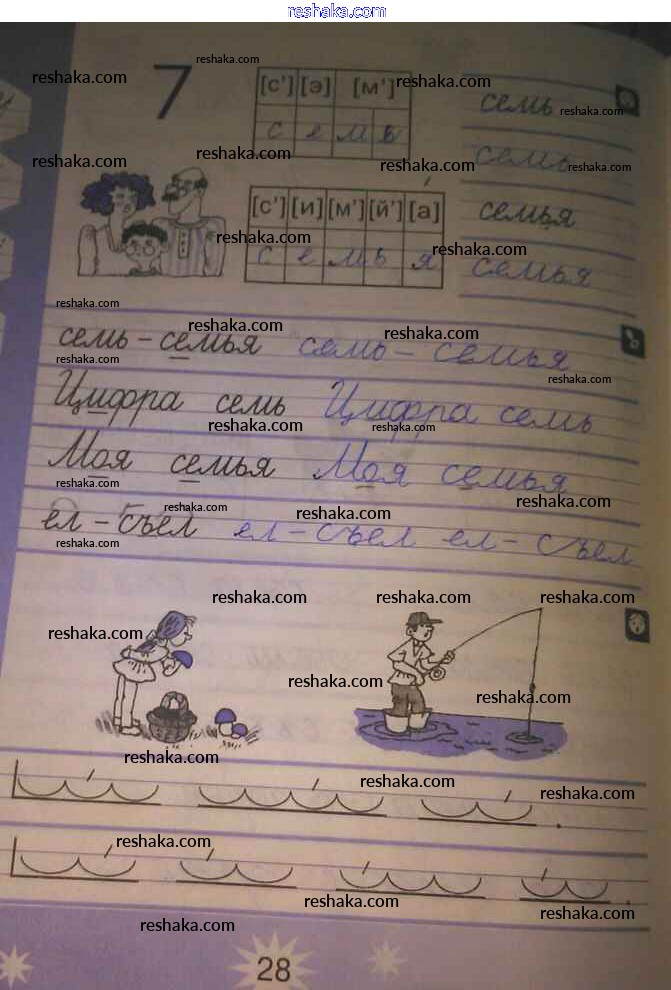 reshaka.com
7
[с'] [э] [м']
с е м ь
семь
семь
[с'] [и] [м'] [й'] [а]
с е м ь я
семья
семья
семь – семья семь – семья
Цифра семь Цифра семь
Моя семья Моя семья
ел – съел ел – съел ел – съел
28